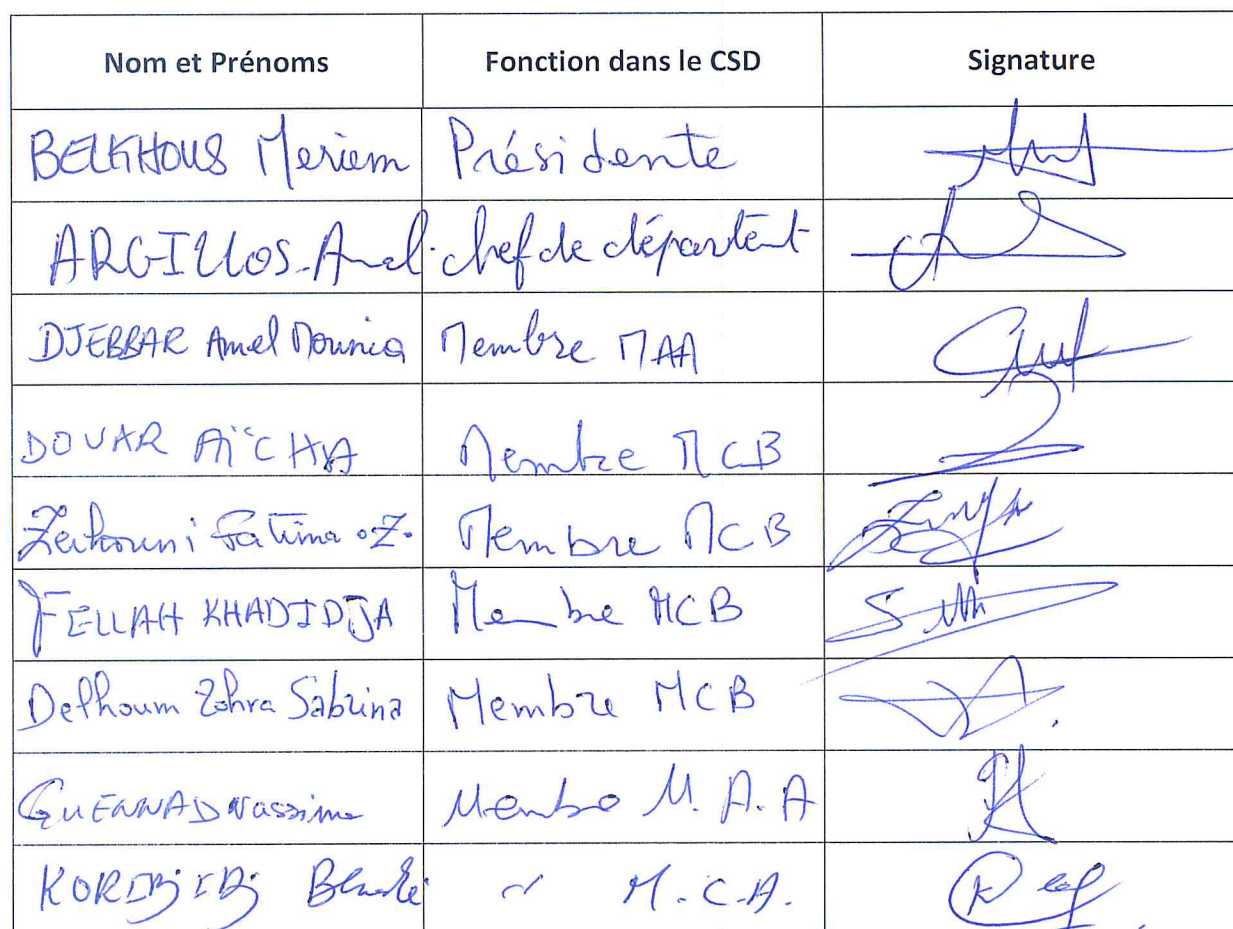 Nom et Prénoms Fonction dans le CSD Signature
BELKHOUS Meriem Présidente
ARGILLOS Amel chef de départent
DJEBBAR Amel Mounia Membre MAA
DOUAR AÏCHA Membre MCB
Zerhouni Fatima .Z. Membre MCB
FELLAH KHADIDJA Membre MCB
Delhoum Zohra Sabrina Membre MCB
GUENNAD Nassima Membre M.A.A
M.C.A.